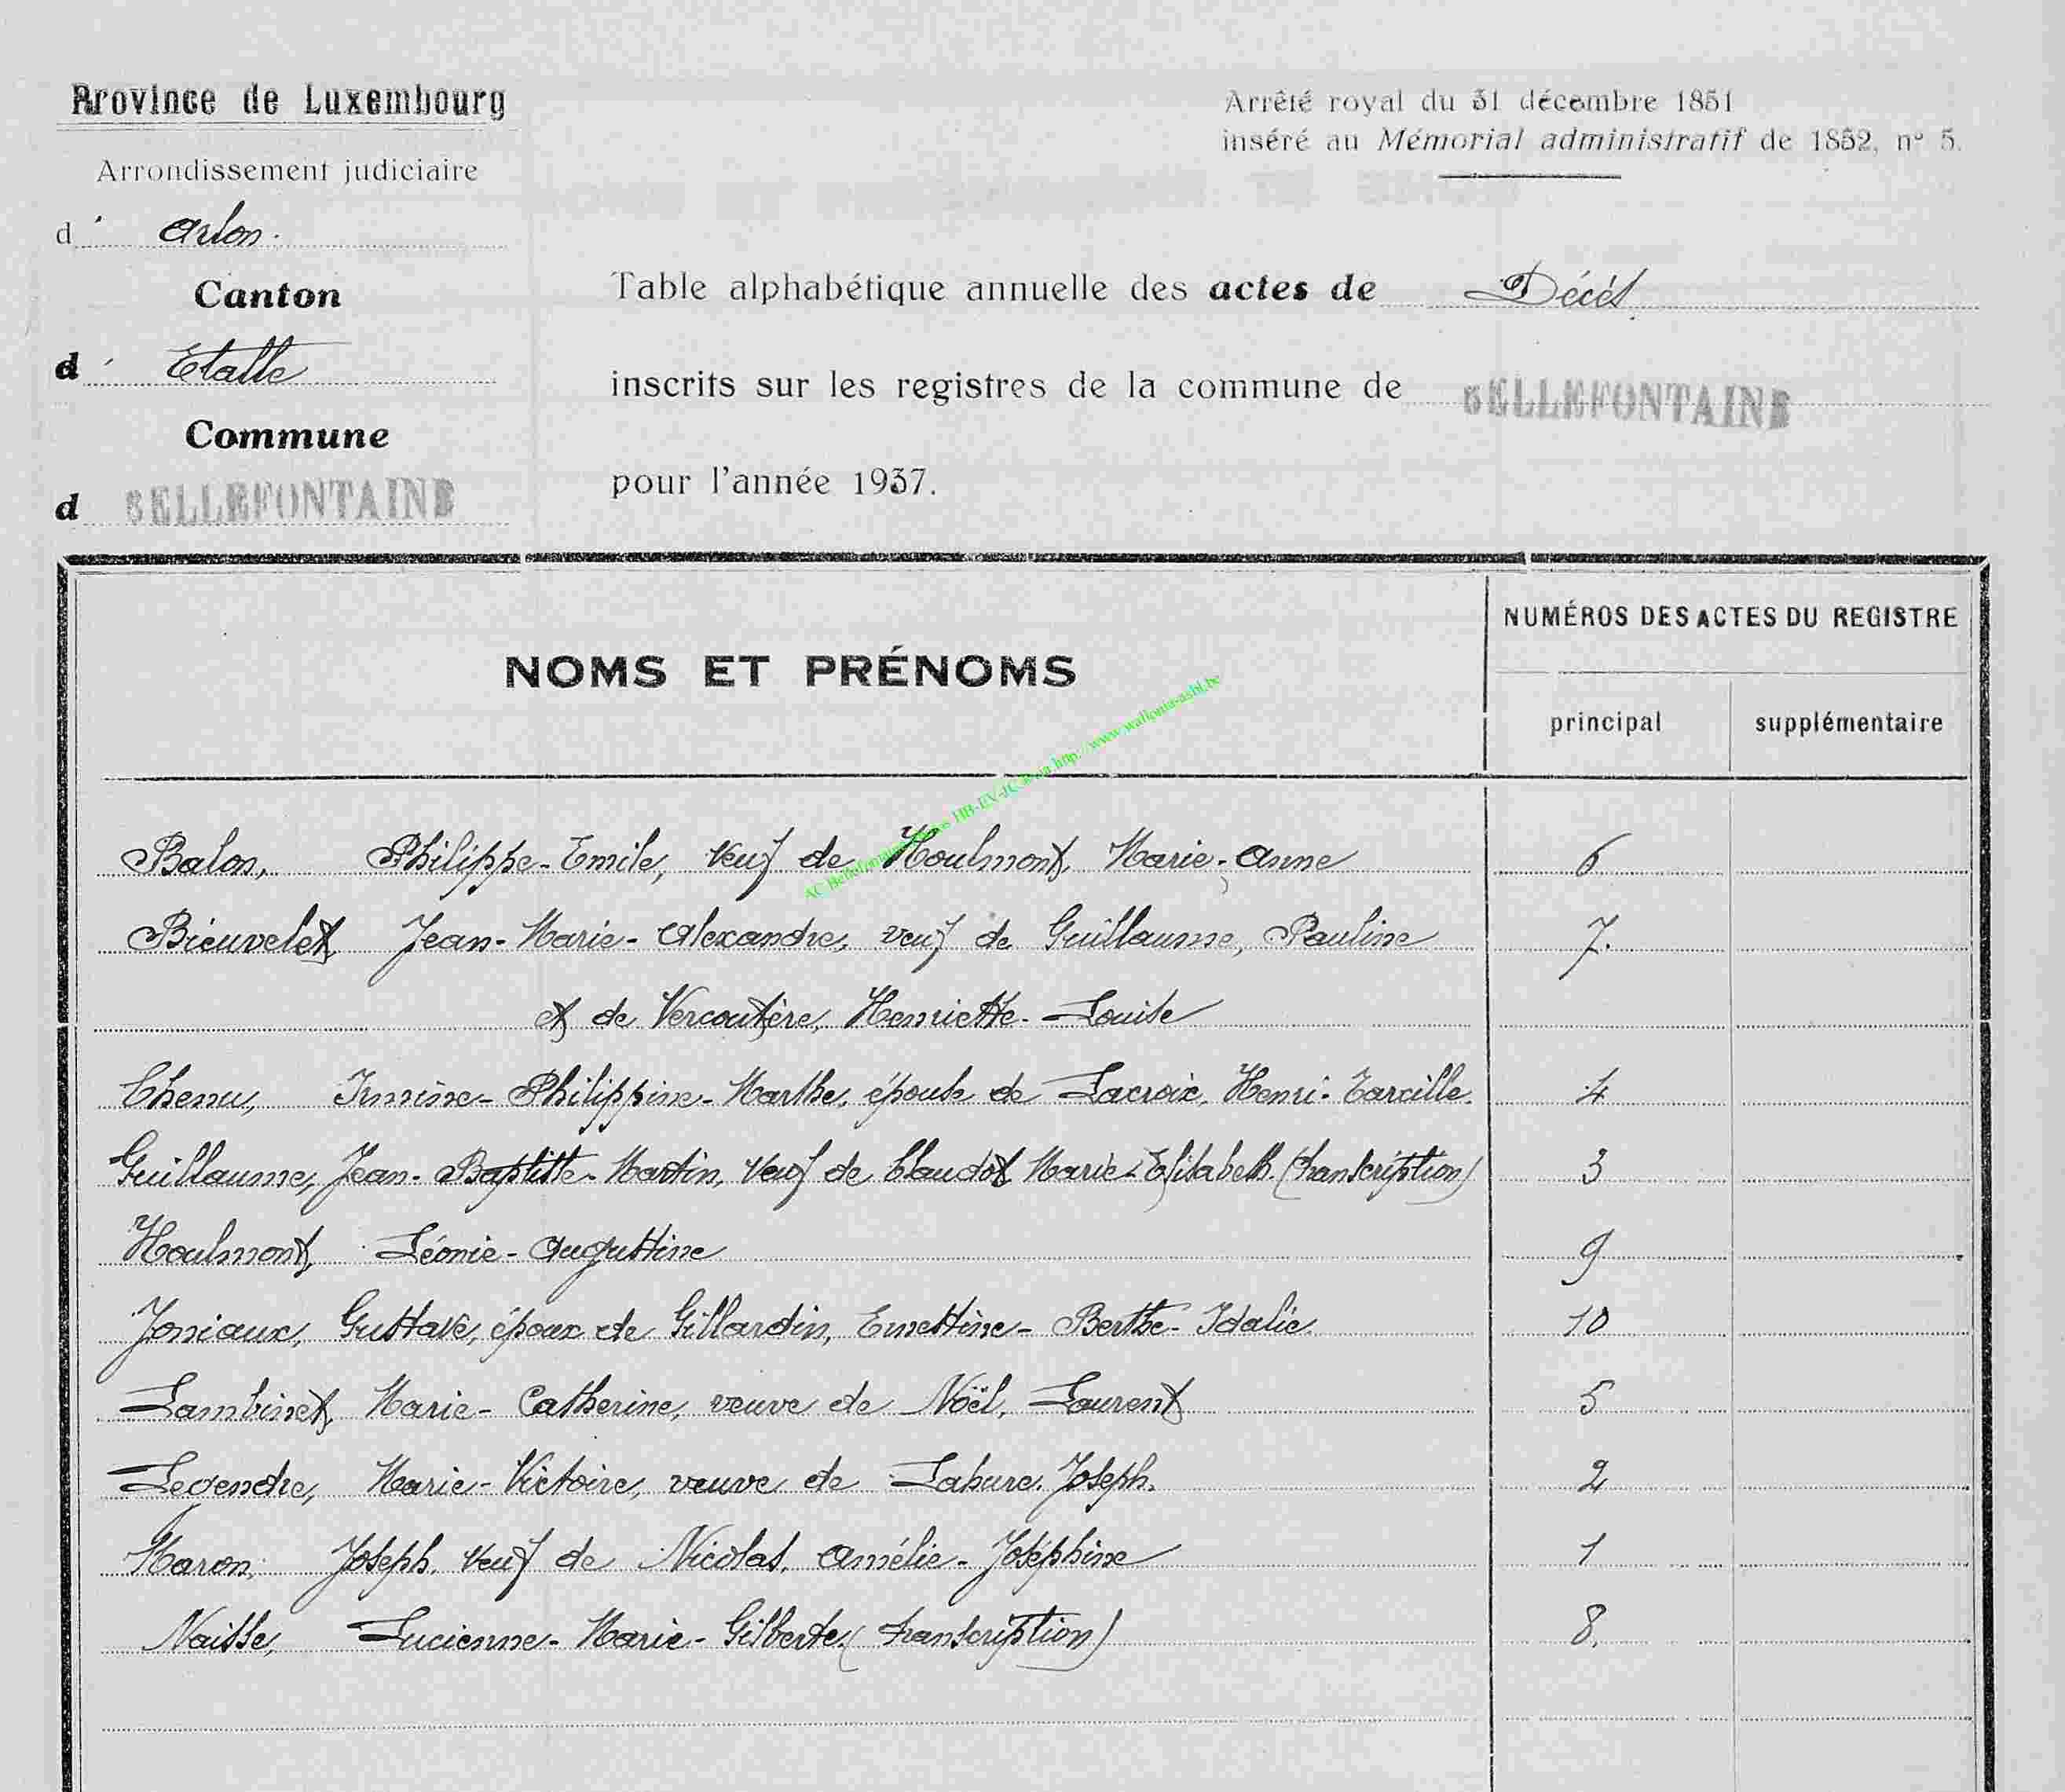 Province de Luxembourg
Arrondissement judiciaire
d' Arlon.
Canton
d' Etalle
Commune
d BELLEFONTAINE
Arrêté royal du 31 décembre 1851
inséré au Mémorial administratif de 1852, n° 5.
Table alphabétique annuelle des actes de Décès
inscrits sur les registres de la commune de BELLEFONTAINE
pour l'année 1937.
NOMS ET PRÉNOMS
NUMÉROS DES ACTES DU REGISTRE
principal supplémentaire
Balon, Philippe-Emile, veuf de Houlmont, Marie-Anne 6
Bieuvelet, Jean-Marie-Alexandre, veuf de Guillaume, Pauline 7.
et de Vercoutère, Henriette-Louise
Chenu, Irmine-Philippine-Marthe, épouse de Lacroix, Henri-Tarcille. 4
Guillaume, Jean-Baptiste-Martin, veuf de Claudot Marie-Elisabeth. (transcription) 3
Houlmont, Léonie-Augustine 9
Joniaux, Gustave, époux de Gillardin, Ernestine-Berthe-Idalie. 10
Lambinet, Marie-Catherine, veuve de Noël, Laurent 5
Legendre, Marie-Victoire, veuve de Labure, Joseph. 2
Maron, Joseph, veuf de Nicolas, Amélie-Joséphine 1
Naisse, Lucienne-Marie-Gilberte, (transcription) 8.
AC Bellefontaine HB-EV-JC http://www.wallonia-asbl.be